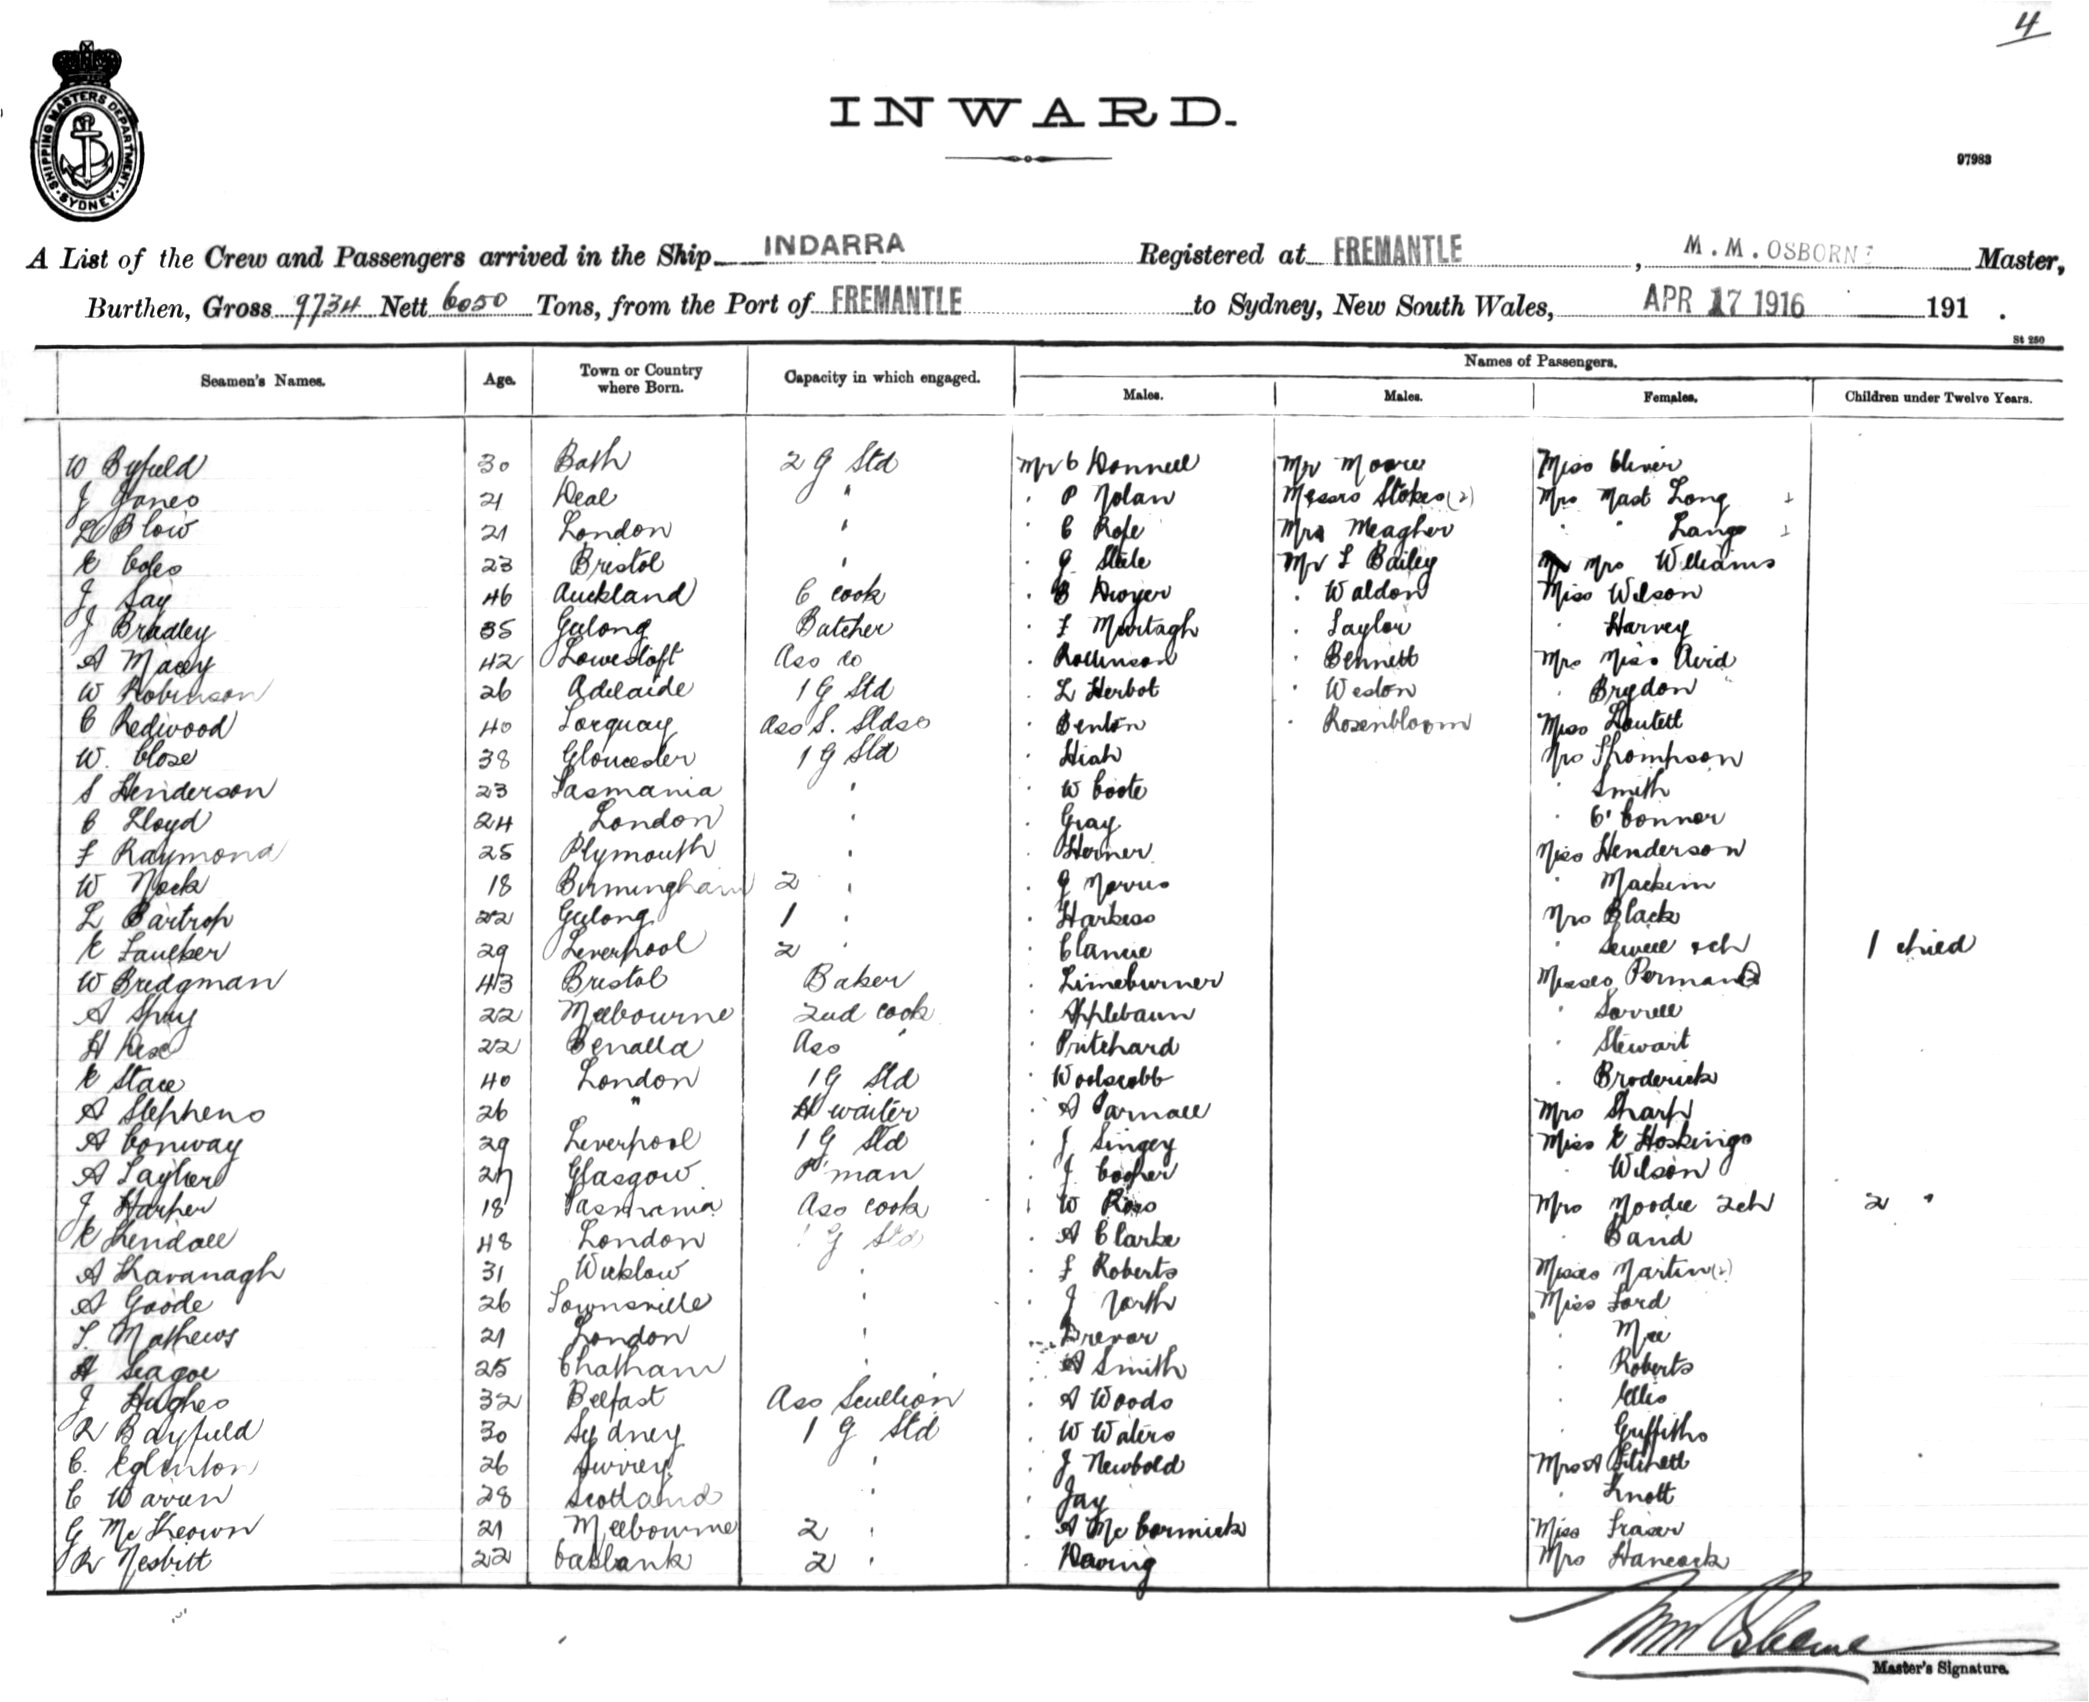 4
SHIPPING MASTERS DEPARTMENT
SYDNEY
INWARD.
97983
A List of the Crew and Passengers arrived in the Ship INDARRA Registered at FREMANTLE, M. M. OSBORNE Master,
Burthen, Gross 9734 Nett 6050 Tons, from the Port of FREMANTLE to Sydney, New South Wales, APR 17 1916 191 .
St 250
Seamen's Names. Age. Town or Country where Born. Capacity in which engaged. Names of Passengers.
Males. Males. Females. Children under Twelve Years.
W Byfield 30 Bath 2 G Std Mr O Donnell Mr Moore Miss Oliver
J Janes 21 Deal " " P Nolan Messrs Stokes (2) Mrs Mast Long 1
L Blow 21 London " " C Rofe Mrs Meagher " " Lange 1
E Coles 23 Bristol " " G Steele Mr F Bailey Mrs Williams
J Say 46 Auckland C cook " B Dwyer " Waldon Miss Wilson
J Bradley 35 Geelong Butcher " F Murtagh " Taylor " Harvey
A Macey 42 Lowestoft Ass do " Rollinson " Bennett Mrs Miss Avid
W Robinson 26 Adelaide 1 G Std " L Herbot " Weston " Brydon "
C Redwood 40 Torquay Ass S. Sldss " Benton " Rosenbloom Miss
W. Close 38 Gloucester 1 G Std " Hiah Mrs Thompson
S Henderson 23 Tasmania " " W Coote " Smith
C Lloyd 24 London " " Gray " O'Connor
F Raymond 25 Plymouth " " Horner Miss Henderson
W Nock 18 Birmingham 2 " " G Norris " Mackim
L Bartrop 22 Geelong 1 " " Harkess Mrs Black
E Faulker 29 Liverpool 2 " " Clancie " Sewell & ch 1 child
W Bridgman 43 Bristol Baker " Limeburner Misses Perman 2
A Spry 22 Melbourne 2nd cook " Applebaum " Sorrell
H 22 Benalla Ass " " Pritchard " Stewart
E Stace 40 London 1 G Std " Woolscobb " Broderick
A Stephens 26 " H waiter " A Parnall Mrs Sharp
A Conway 29 Liverpool 1 G Std " J Singey Miss E Hoskings
A Taylor 27 Glasgow P man " J Cosher " Wilson
J Harper 18 Tasmania Ass cook " W Ross Mrs Moodie 2 ch 2 "
E Kendall 48 London 1 G Std " A Clarke " Band
A Kavanagh 31 Wicklow " " F Roberts Misses Martin (2)
A Goode 26 Townsville " " J North Miss Ford
T. Mathews 21 London " " Brevor " Mee
H Seagoe 25 Chatham " " A Smith " Roberts
J Hughes 32 Belfast Ass Scullion " A Woods " Ellis
R Bayfield 30 Sydney 1 G Std " W Waters " Griffiths
C. Eglinton 26 Surrey " " J Newbold Mrs A Fitchett
C Warren 28 Scotland " " Jay " Knott
G McKeown 21 Melbourne 2 " " A McCormick Miss Fraser
R Nesbitt 22 Oakbank 2 " " Daving Mrs Hancock
Master's Signature.